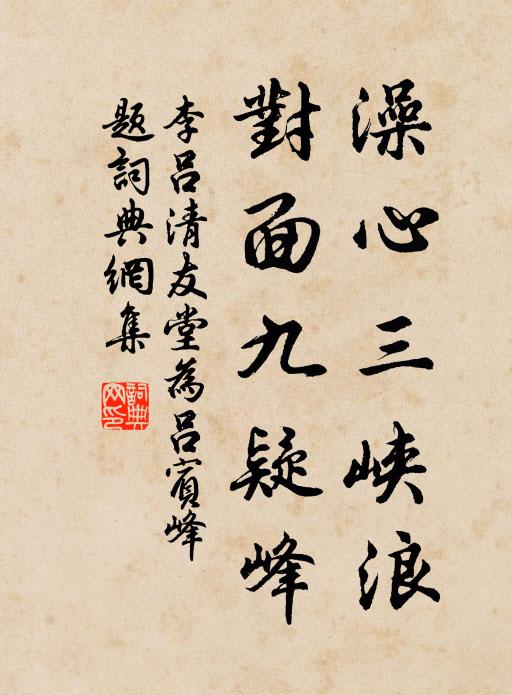 澡心三峽浪
對面九疑峰
李呂清友堂為呂賓峰
題詞典網集
詞典
网印